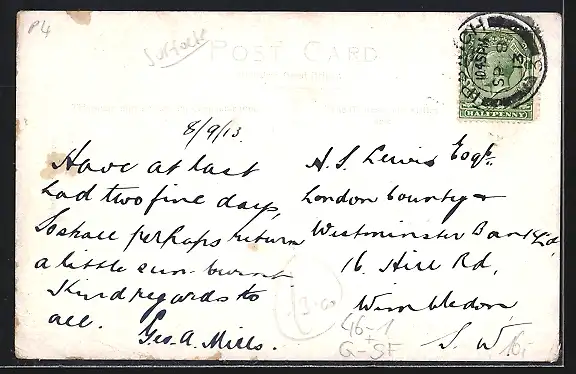 P4
Surfack
POST CARD
HALFPENNY
8/9/13.
Have at last
had two fine days,
So shall perhaps return
a little sun-burnt
Kind regards to
all.
Geo. A. Mills.
A. S. Lewis Esqre.
London County &
Westminster Bank Ld,
16. Hill Rd,
Wimbledon,
S. W.
13-00
46-1
G-SF